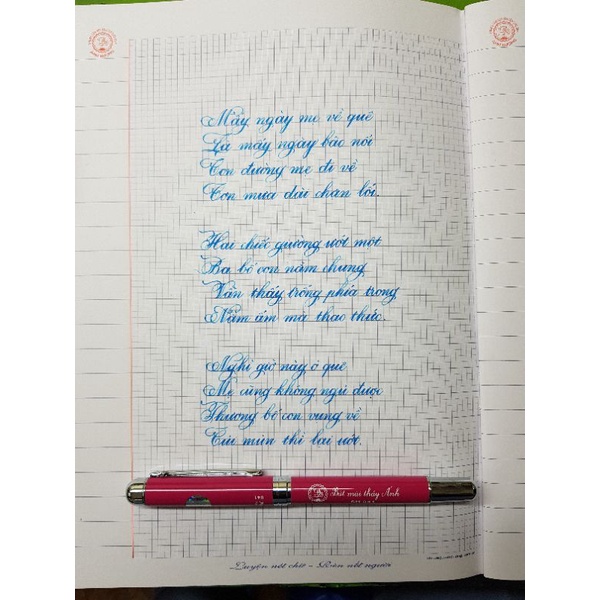 Mấy ngày mẹ về quê
Là mấy ngày bão nổi
Con đường mẹ đi về
Cơn mưa dài chặn lối.
Hai chiếc giường ướt một
Ba bố con nằm chung
Vẫn thấy trống phía trong
Nằm ấm mà thao thức.
Nghĩ giờ này ở quê
Mẹ cũng không ngủ được
Thương bố con vụng về
Củi mùn thì lại ướt.
Bút mài thầy Ánh
Luyện nét chữ - Rèn nết người